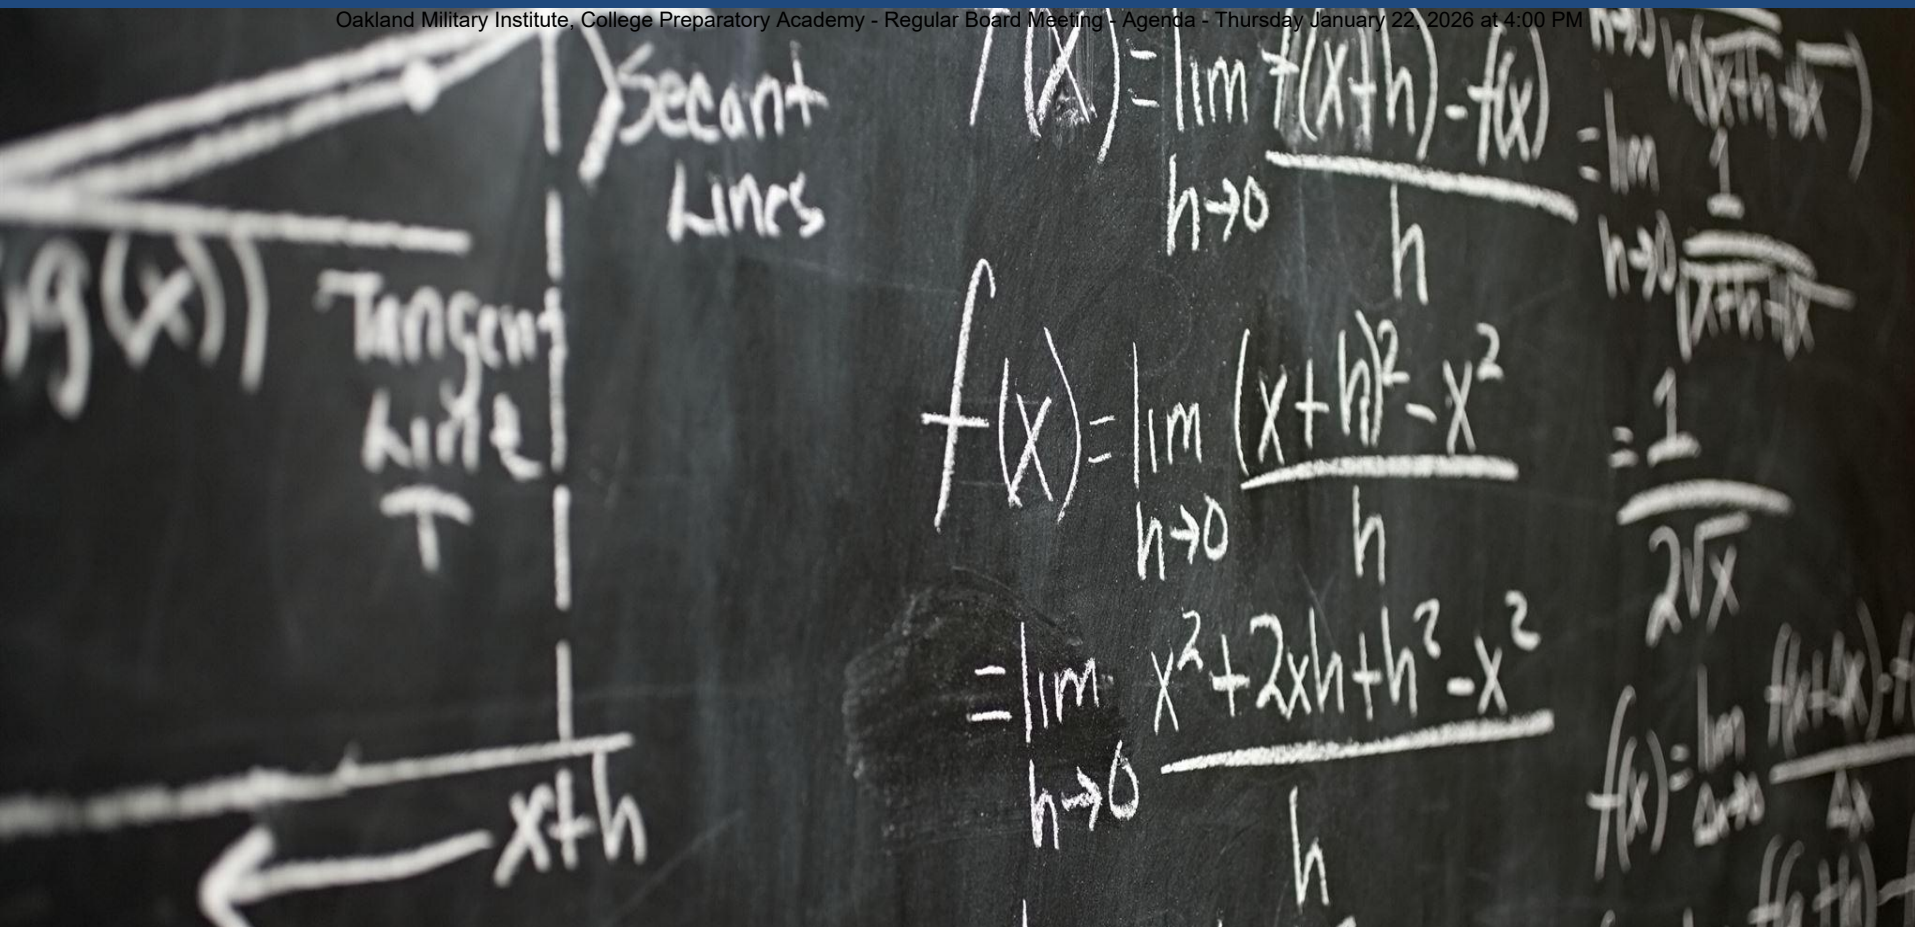 Oakland Military Institute, College Preparatory Academy - Regular Board Meeting - Agenda - Thursday January 22, 2026 at 4:00 PM
Secant
Lines
g(x))
Tangent
Line
T
x+h
f(x) = lim f(x+h) - f(x)
h→0 h
f(x) = lim (x+h)² - x²
h→0 h
= lim x² + 2xh + h² - x²
h→0 h
h→0
= lim 1
h→0 √x+h+√x
= 1
2√x
f(x) = lim
Δx→0 Δx